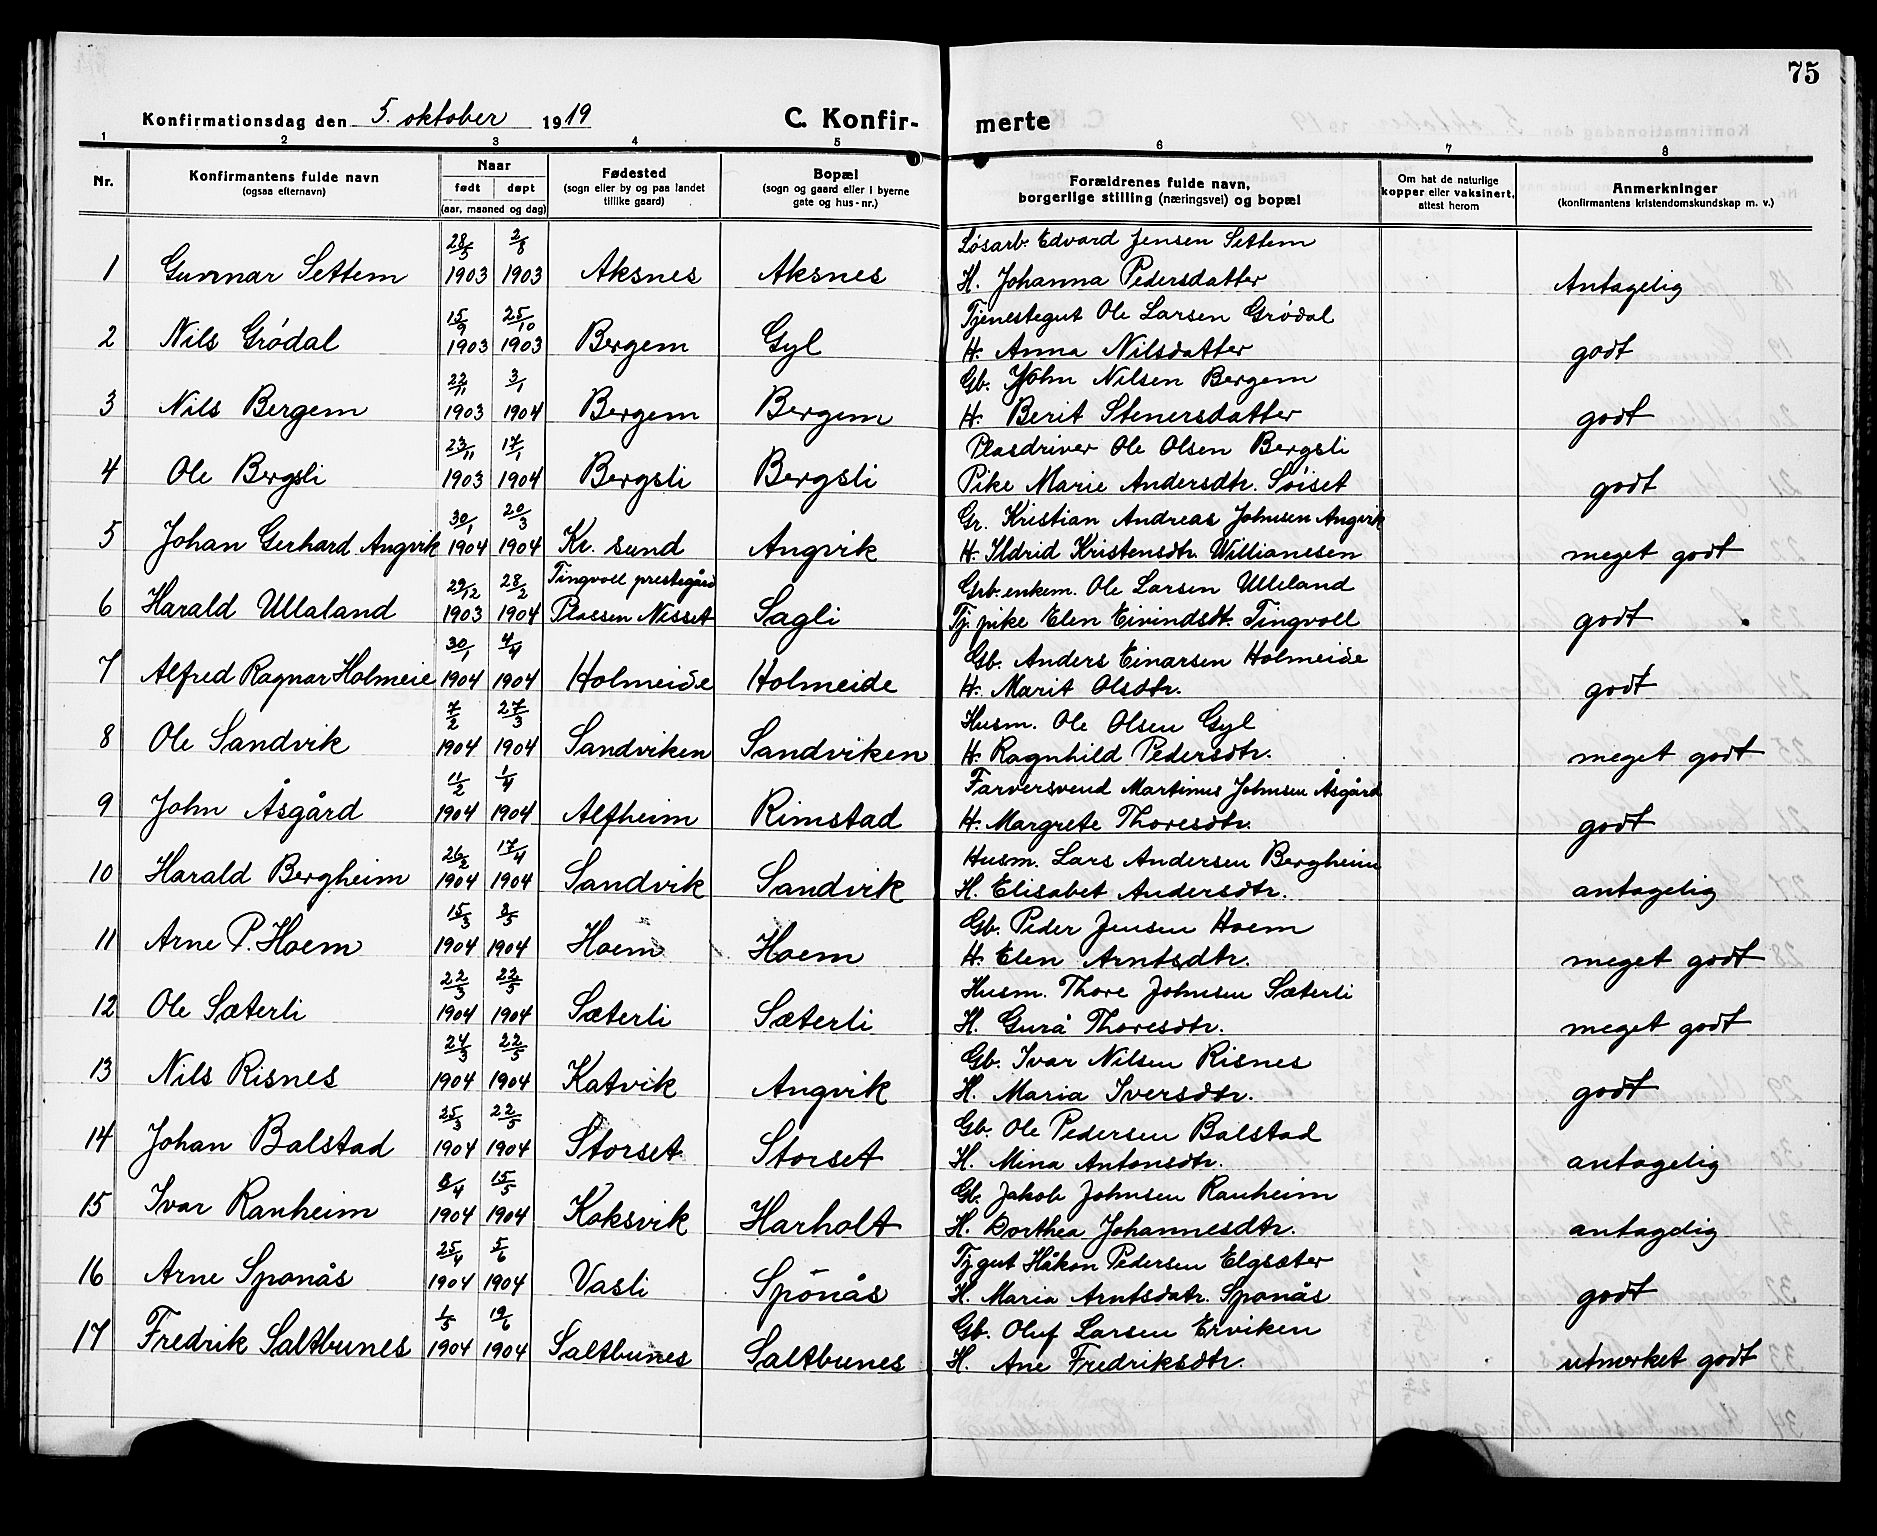 75
Konfirmationsdag den 5. oktober 1919 C. Konfirmerte
1 2 3 4 5 6 7 8
Nr. Konfirmantens fulde navn (ogsaa efternavn) Naar født døpt (aar, maaned og dag) Fødested (sogn eller by og paa landet tillike gaard) Bopæl (sogn og gaard eller i byerne gate og hus-nr.) Forældrenes fulde navn, borgerlige stilling (næringsvei) og bopæl Om hat de naturlige kopper eller vaksinert, attest herom Anmerkninger (konfirmantens kristendomskundskap m. v.)
28/5 2/8 Løsarb. Edvard Jensen Settem
1 Gunnar Settem 1903 1903 Aksnes Aksnes H. Johanna Pedersdatter Antagelig
15/9 25/10 Tjenestegut Ole Larsen Grødal
2 Nils Grødal 1903 1903 Bergem Gyl H. Anna Nilsdatter godt
22/11 3/1 Gb. John Nilsen Bergem
3 Nils Bergem 1903 1904 Bergem Bergem H. Berit Stenersdatter godt
23/11 17/1 Plasdriver Ole Olsen Bergsli
4 Ole Bergsli 1903 1904 Bergsli Bergsli Pike Marie Andersdtr. Søiset godt
30/1 20/3 Gr. Kristian Andreas Johnsen Angvik
5 Johan Gerhard Angvik 1904 1904 Kr. sund Angvik H. Ildrid Kristensdtr. Willianesen meget godt
29/12 28/2 Tingvoll prestegård Grb. enkem. Ole Larsen Ulleland
6 Harald Ullaland 1903 1904 Plassen Nisset Sagli Tj. pike Elen Eivindsdt. Tingvoll godt
30/1 4/4 Gb. Anders Einarsen Holmeide
7 Alfred Ragnar Holmeie 1904 1904 Holmeide Holmeide H. Marit Olsdtr. godt
7/2 27/3 Husm. Ole Olsen Gyl
8 Ole Sandvik 1904 1904 Sandviken Sandviken H. Ragnhild Pedersdtr. meget godt
11/2 1/4 Farversvend Martinus Johnsen Åsgård
9 John Åsgård 1904 1904 Alfheim Rimstad H. Margrete Thoresdtr. godt
26/2 17/4 Husm. Lars Andersen Bergheim
10 Harald Bergheim 1904 1904 Sandvik Sandvik H. Elisabet Andersdtr. antagelig
15/3 8/5 Gb. Peder Jensen Hoem
11 Arne P. Hoem 1904 1904 Hoem Hoem H. Elen Arntsdtr. meget godt
22/3 22/5 Husm. Thore Johnsen Sæterli
12 Ole Sæterli 1904 1904 Sæterli Sæterli H. Gurå Thoresdtr. meget godt
24/3 22/5 Gb. Ivar Nilsen Risnes
13 Nils Risnes 1904 1904 Katvik Angvik H. Maria Iversdtr. godt
25/3 22/5 Gb. Ole Pedersen Balstad
14 Johan Balstad 1904 1904 Storset Storset H. Mina Antonsdtr. antagelig
8/4 15/5 Gb. Jakob Johnsen Ranheim
15 Ivar Ranheim 1904 1904 Koksvik Harholt H. Dorthea Johannesdtr. antagelig
25/4 5/6 Tj gut Håkon Pedersen Elgsæter
16 Arne Sponås 1904 1904 Vasli Sponås H. Maria Arntsdatr. Sponås godt
1/5 19/6 Gb. Oluf Larsen Erviken
17 Fredrik Saltbunes 1904 1904 Saltbunes Saltbunes H. Ane Fredriksdtr. utmerket godt